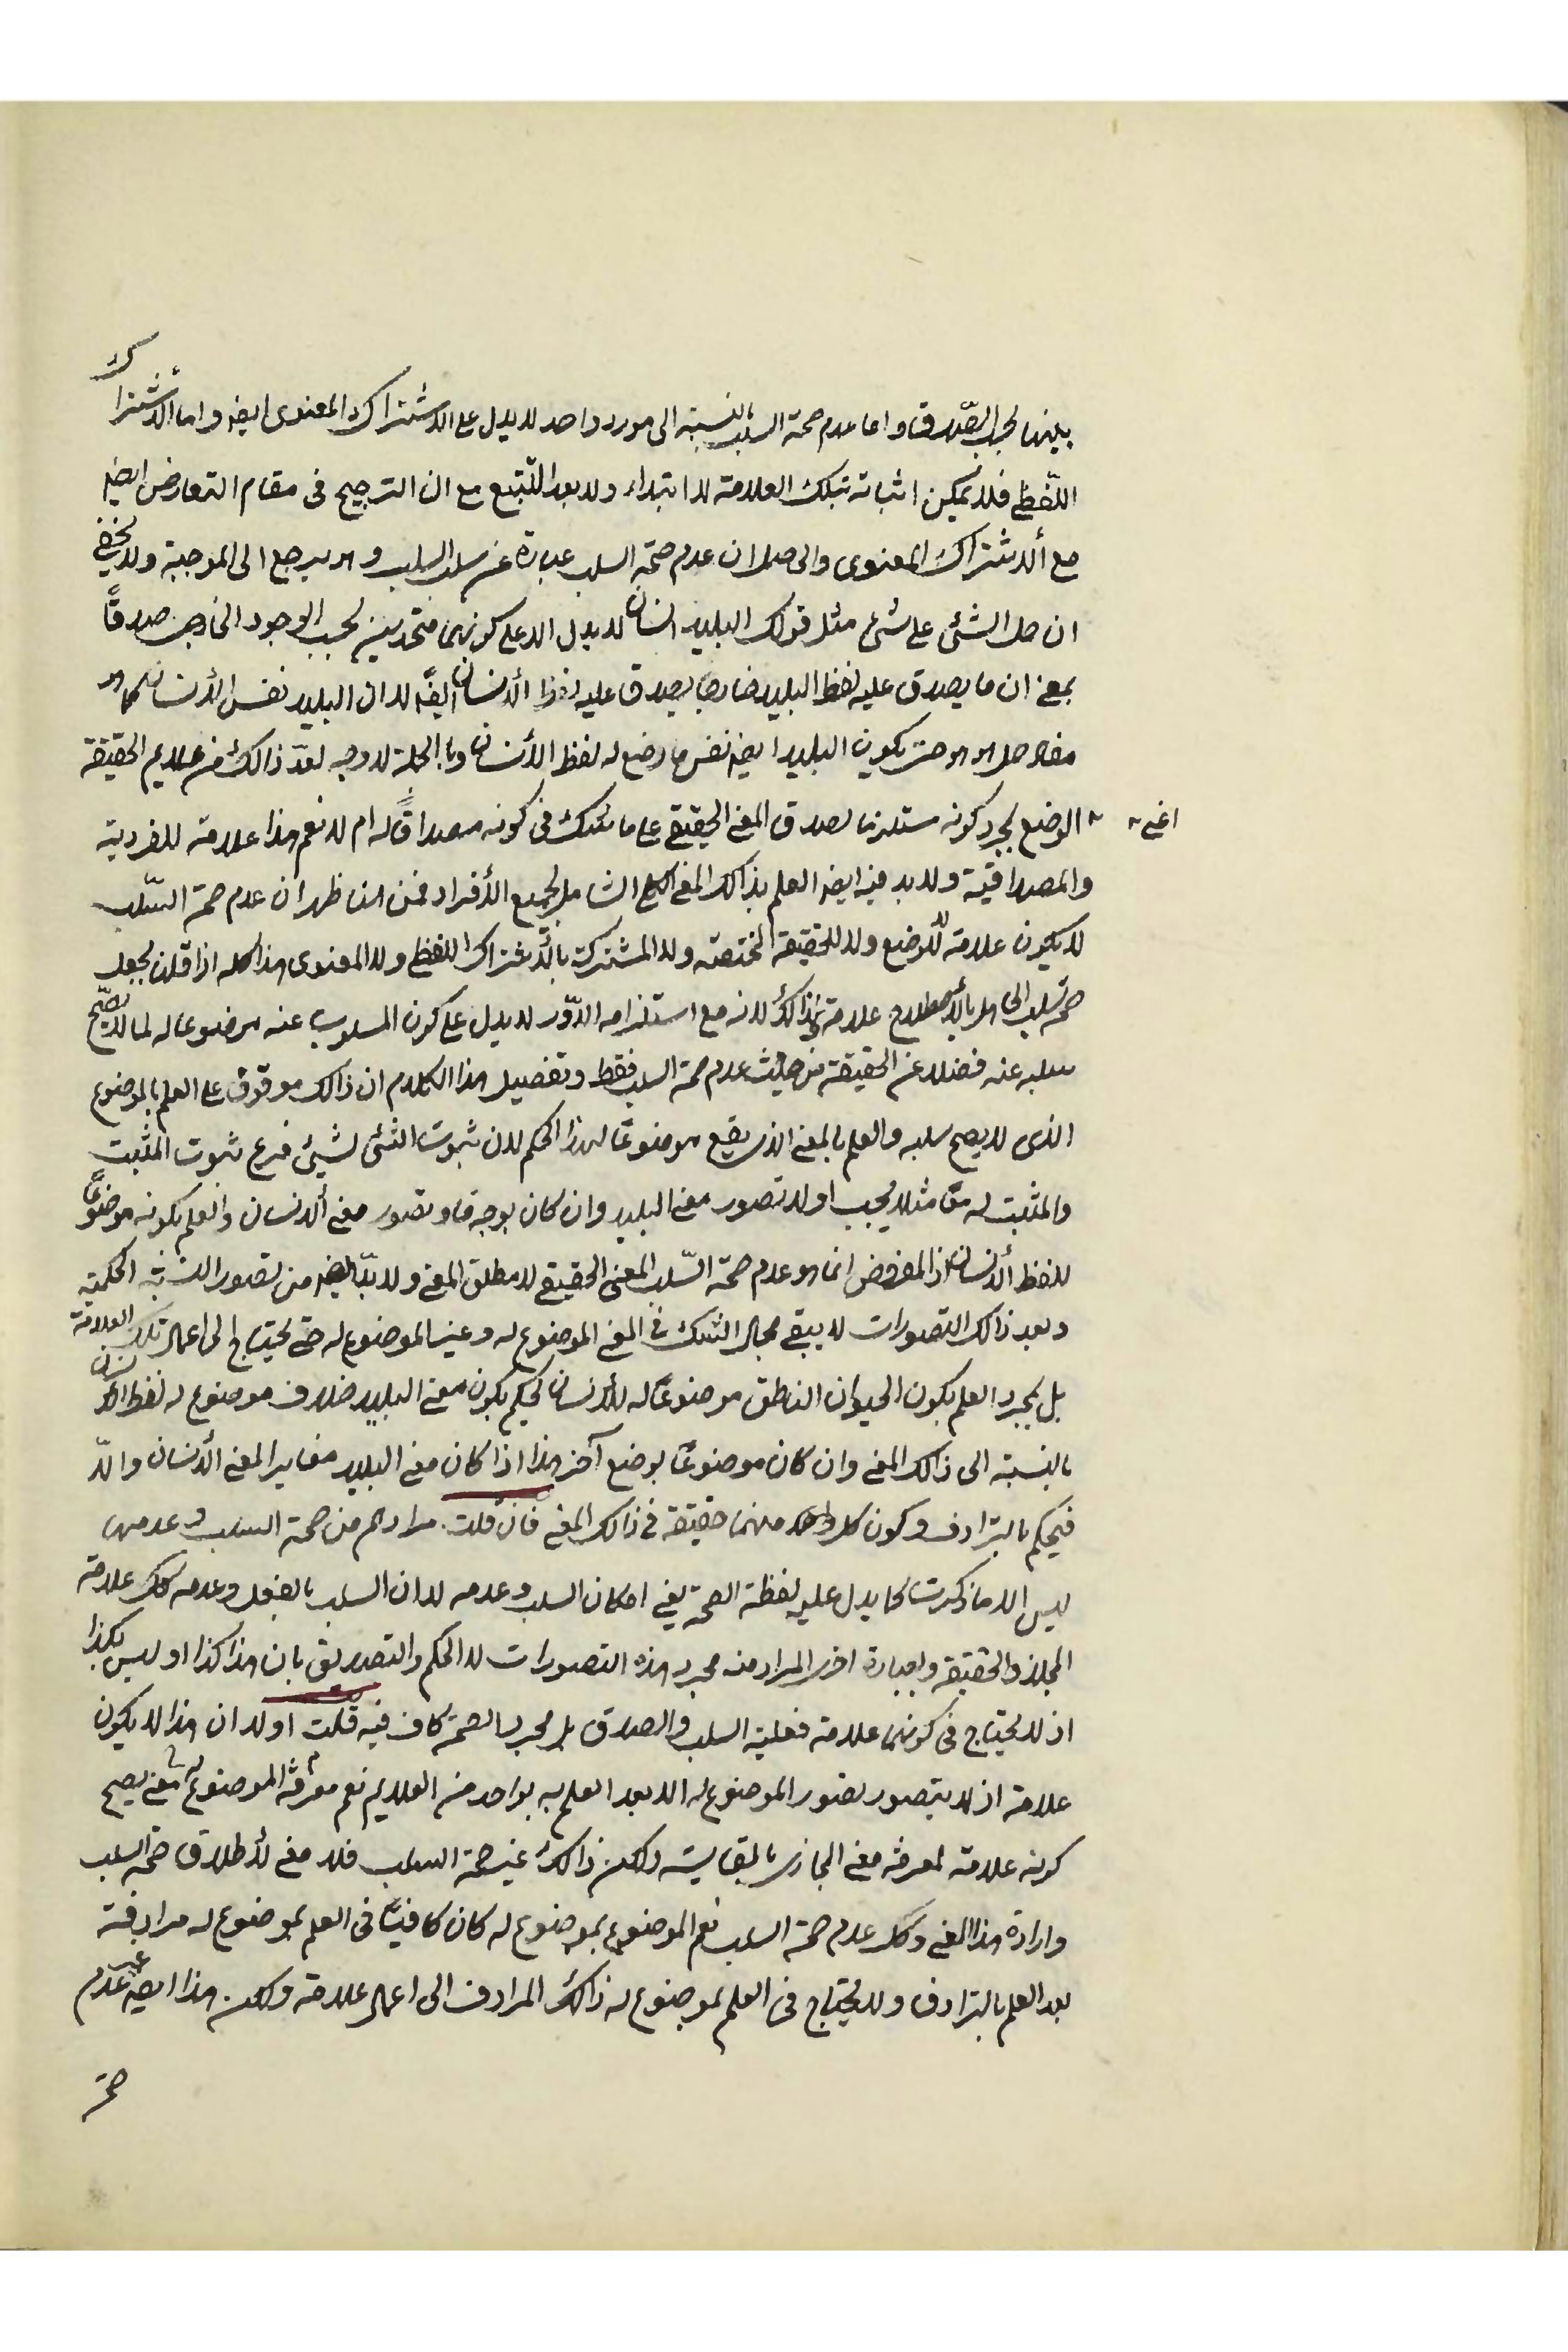 بينهما بحسب الصّدق و اما عدم صحة السلب بالنسبة الى مورد واحد لا يدل على الاشتراك المعنوى ايضه و اما الأشتراك
اللّفظى فلا يمكن اثباته بتلك العلامة لا ابتداء ولا بعد التّتبع مع ان الترجيح فى مقام التعارض ايضه
مع ألاشتراك المعنوى والحاصل ان عدم صحّة السلب عبارة عن سلب السلب وهو يرجع الى الموجبة ولا يخفى
ان حمل الشئى على شئ مثل قولك البليد انسان لا يدل الا على كونهما متحدين بحسب الوجود الخارجى صدقًا
بمعنى ان ما يصدق عليه لفظ البليد خارجا يصدق عليه لفظ ألانسان ايضًه لا ان البليد نفس الأنسان كما هو
مفاد حمل هو هو حتى يكون البليد ايضه نفس ما وضع له لفظ الأنسان وبالجملة لا وجه لعدّ ذالك من علايم الحقيقة
اعنى الوضع بمجرد كونه مستلزما لصدق المعنى الحقيقى على ما شكك فى كونه مصداقًا له ام لا نعم هذا علامة للفردية
والمصداقية ولا بد فيه ايضه العلم بذالك المعنى الكلى الشامل لجميع الأفراد فمن هنا ظهر ان عدم صحة السّلب
لا يكون علامة للوضع ولا للحقيقة المختصة ولا المشتركة بالأشتراك اللفظى ولا المعنوى هذا كله اذا قلنا بجعل
صحة سلب الحمل بالأصطلاح علامة كذالك لانه مع استلزامه الدّور لا يدل على كون المسلوب عنه موضوعا له لما لا يصحّ
سلبه عنه فضلا عن الحقيقة من حيث عدم صحة السلب فقط وتفصيل هذا الكلام ان ذالك موقوف على العلم بالموضوع
الذى لا يصح سلبه والعلم بالمعنى الذى يقع موضوعًا لهذا الحكم لان ثبوت الشئى لشيئ فرع ثبوت المثبت
والمثبت له معًا مثلا يجب اولا تصور معنى البليد وان كان بوجه ما و تصور معنى ألانسان والعلم بكونه موضوعًا
للفظ ألانسان اذ المفروض انما هو عدم صحة السّلب المعنى الحقيقى لا مطلق المعنى ولا بدّ ايضه من تصور النسبة الحكمية
وبعد ذالك التصورات لا يبقى مجال الشك فى المعنى الموضوع له وغير الموضوع له حتى يحتاج الى اعمال تلك العلامة
بل بمجرد العلم بكون الحيوان الناطق موضوعًا له للأنسان يحكم بكون معنى البليد خلاف موضوع له لفظ الانسان
بالنسبة الى ذالك المعنى وان كان موضوعًا بوضع آخر هذا اذا كان معنى البليد مغايرا لمعنى ألانسان والاّ
فيحكم بالترادف وكون كل واحد منهما حقيقة فى ذالك المعنى فان قلت مرادهم من صحة السلب و عدمها
ليس الا ما ذكرت كما يدل عليه لفظة الصحة يعنى امكان السلب و عدمه لا ان السلب بالفعل وعدمه كك علامة
المجاز والحقيقة وبعبارة اخرى المراد منه مجرد هذه التصورات لا الحكم والتصديق بان هذا كذا او ليس بكذا
اذ لا يحتاج فى كونهما علامة فعلية السلب والصدق بل مجرد الصحة كاف فيه قلت اولا ان هذا لا يكون
علامة اذ لا يتصور تصور الموضوع له الا بعد العلم به بواحد من العلايم نعم معرفة الموضوع له معنى يصح
كونه علامة لمعرفة معنى المجازى بالمقايسة ولكن ذالك غير صحة السلب فلا معنى لأطلاق صحة السلب
وارادة هذا المعنى وكك عدم صحة السلب نعم الموضوع بموضوع له كان كافيًا فى العلم بموضوع له مرادفة
بعد العلم بالترادف ولا يحتاج فى العلم بموضوع له ذالك المرادف الى اعمال علامة ولكن هذا ايضه غير عدم
صحة